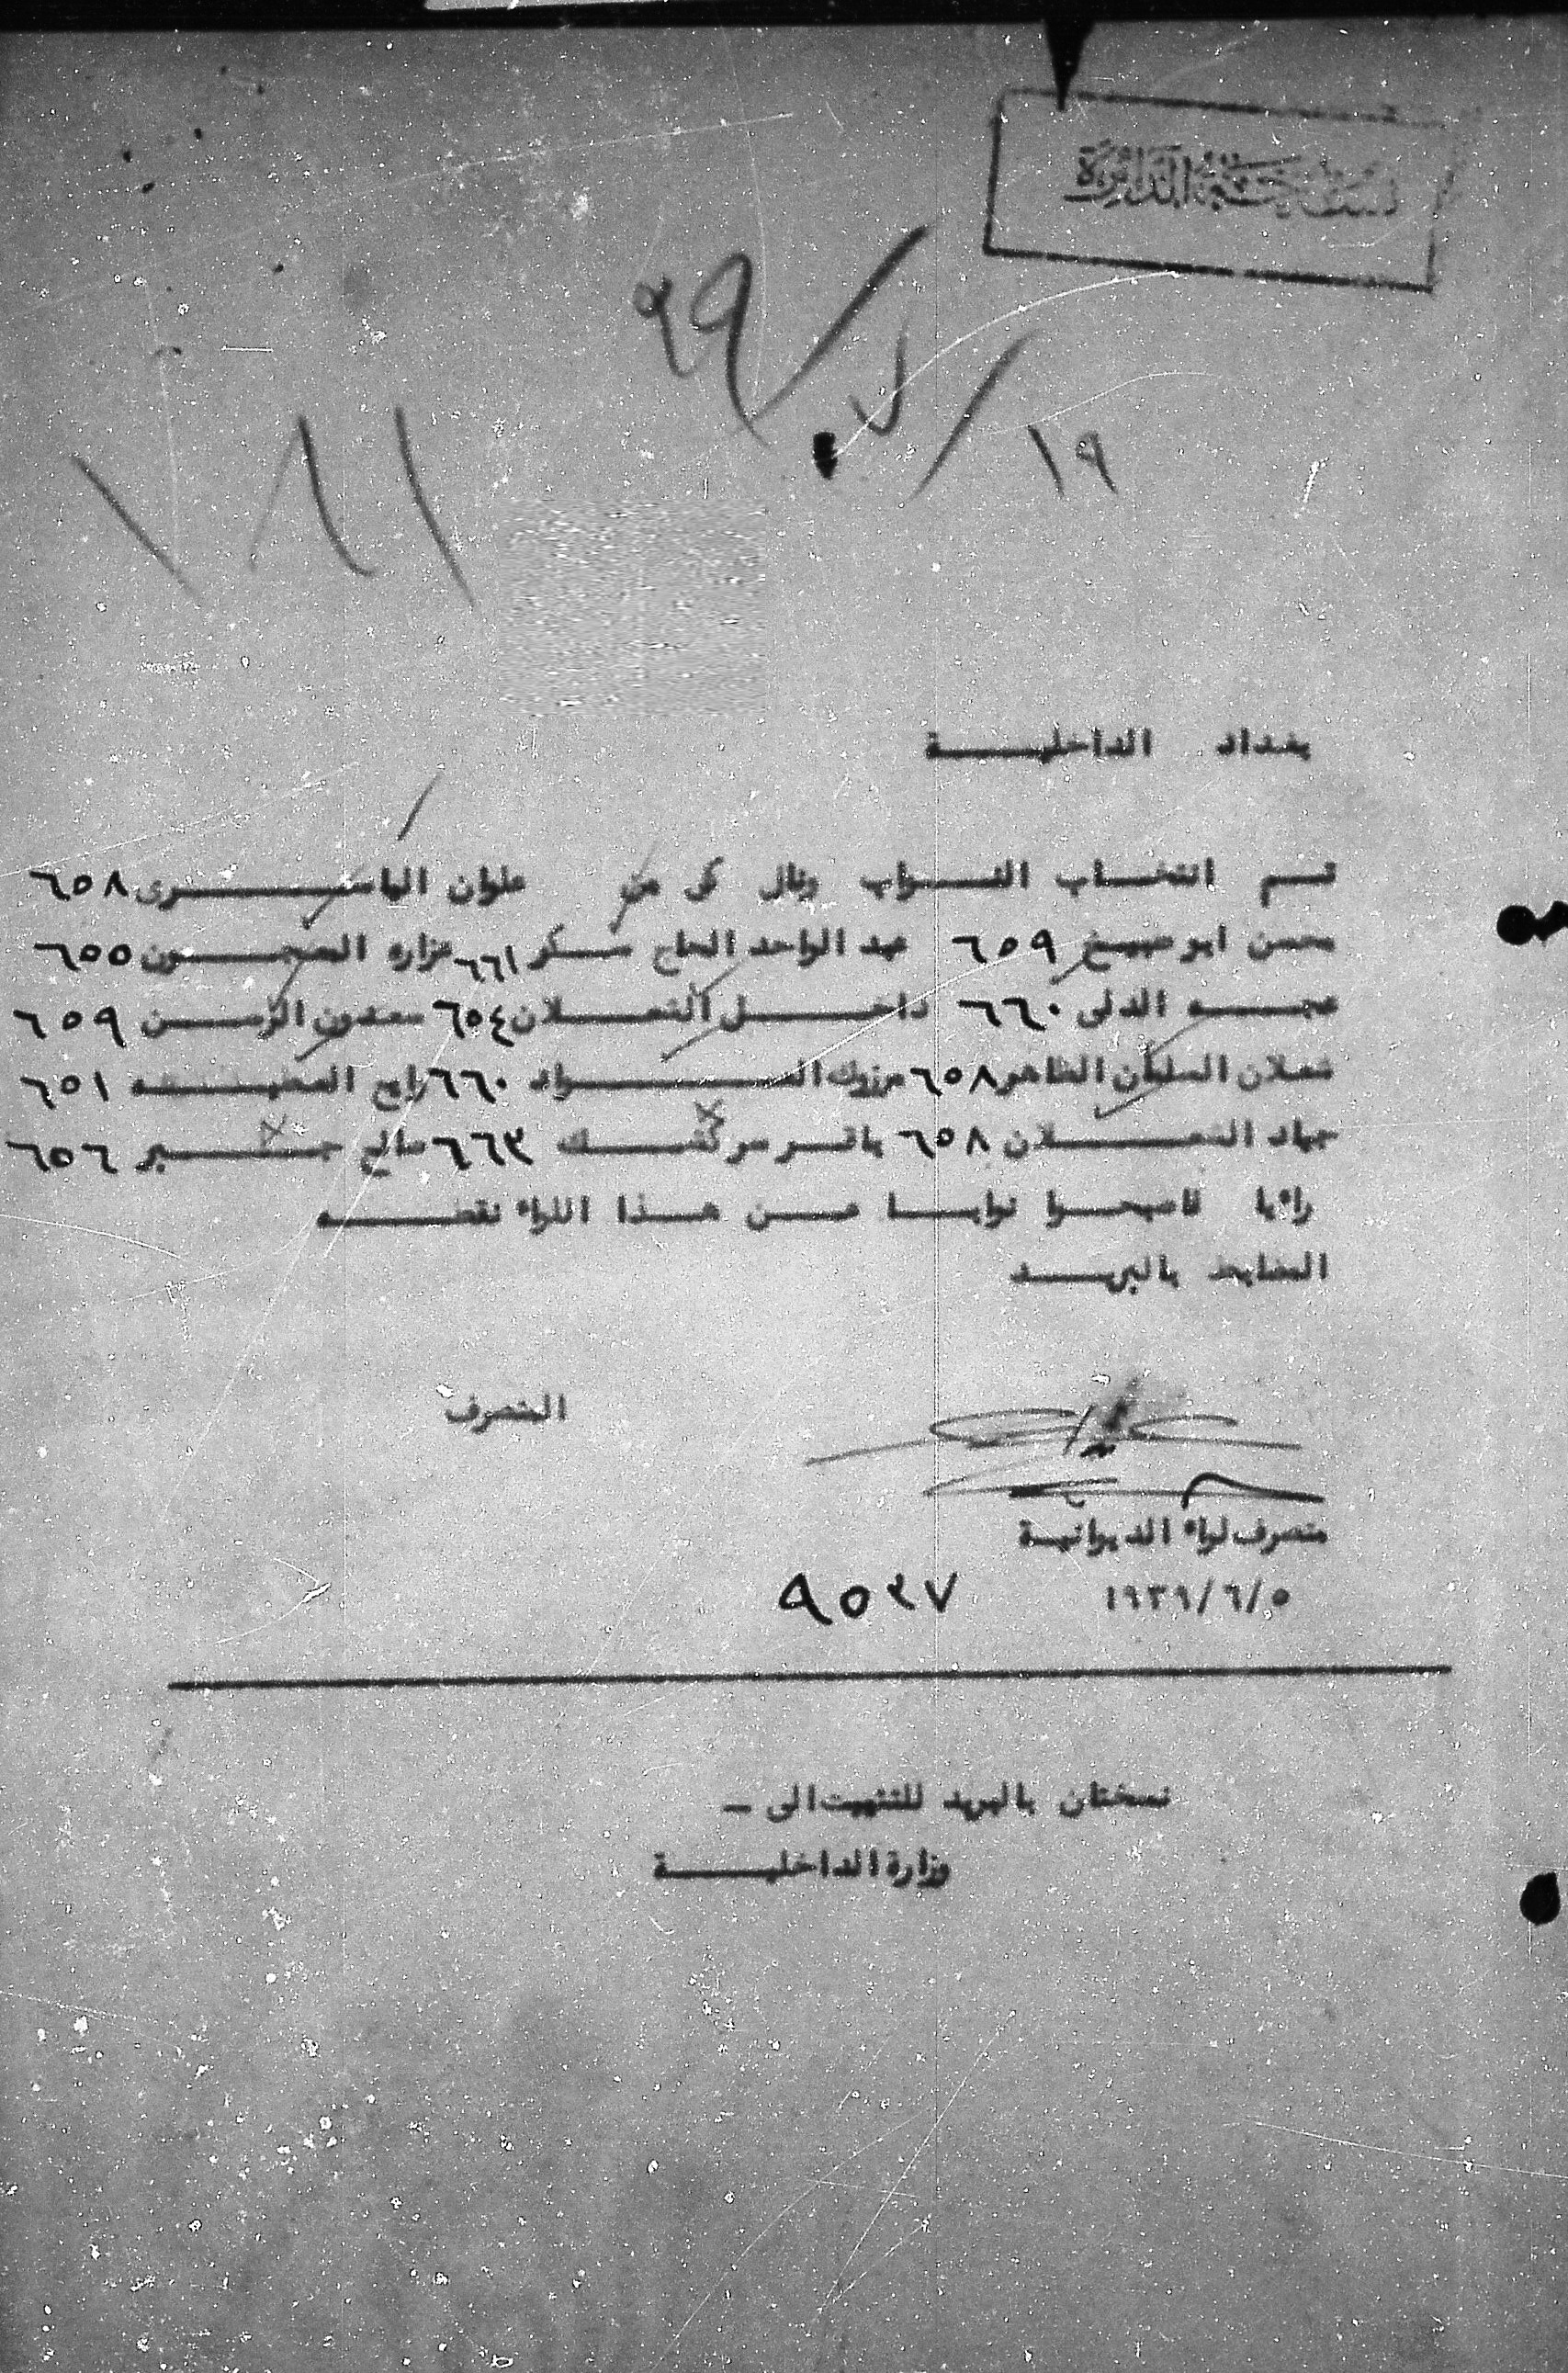 نسخة الدائرة
٩٩/
١٩/
١٨١
بغداد الداخلية
تم انتخاب النواب ونال كل من علوان الياسرى ٦٥٨
محسن ابو طبيخ ٦٥٩ عبد الواحد الحاج سكر ٦٦١ عزاره المعجون ٦٥٥
عجه الدلى ٦٦٠ داخل الشعلان ٦٥٤ سعدون الرسن ٦٥٩
شعلان السلمان الظاهر ٦٥٨ مرزوك العواد ٦٦٠ رايح العطيه ٦٥١
جهاد الشعلان ٦٥٨ باقر سركشك ٦٦٣ صالح جبر ٦٥٦
رايا فاصبحوا نوابا عن هذا اللواء نقطه
المضابط بالبريد
المتصرف
متصرف لواء الديوانية
١٩٣٩/٦/٥
٩٥٢٧
نسختان بالبريد للتثبيت الى –
وزارة الداخلية